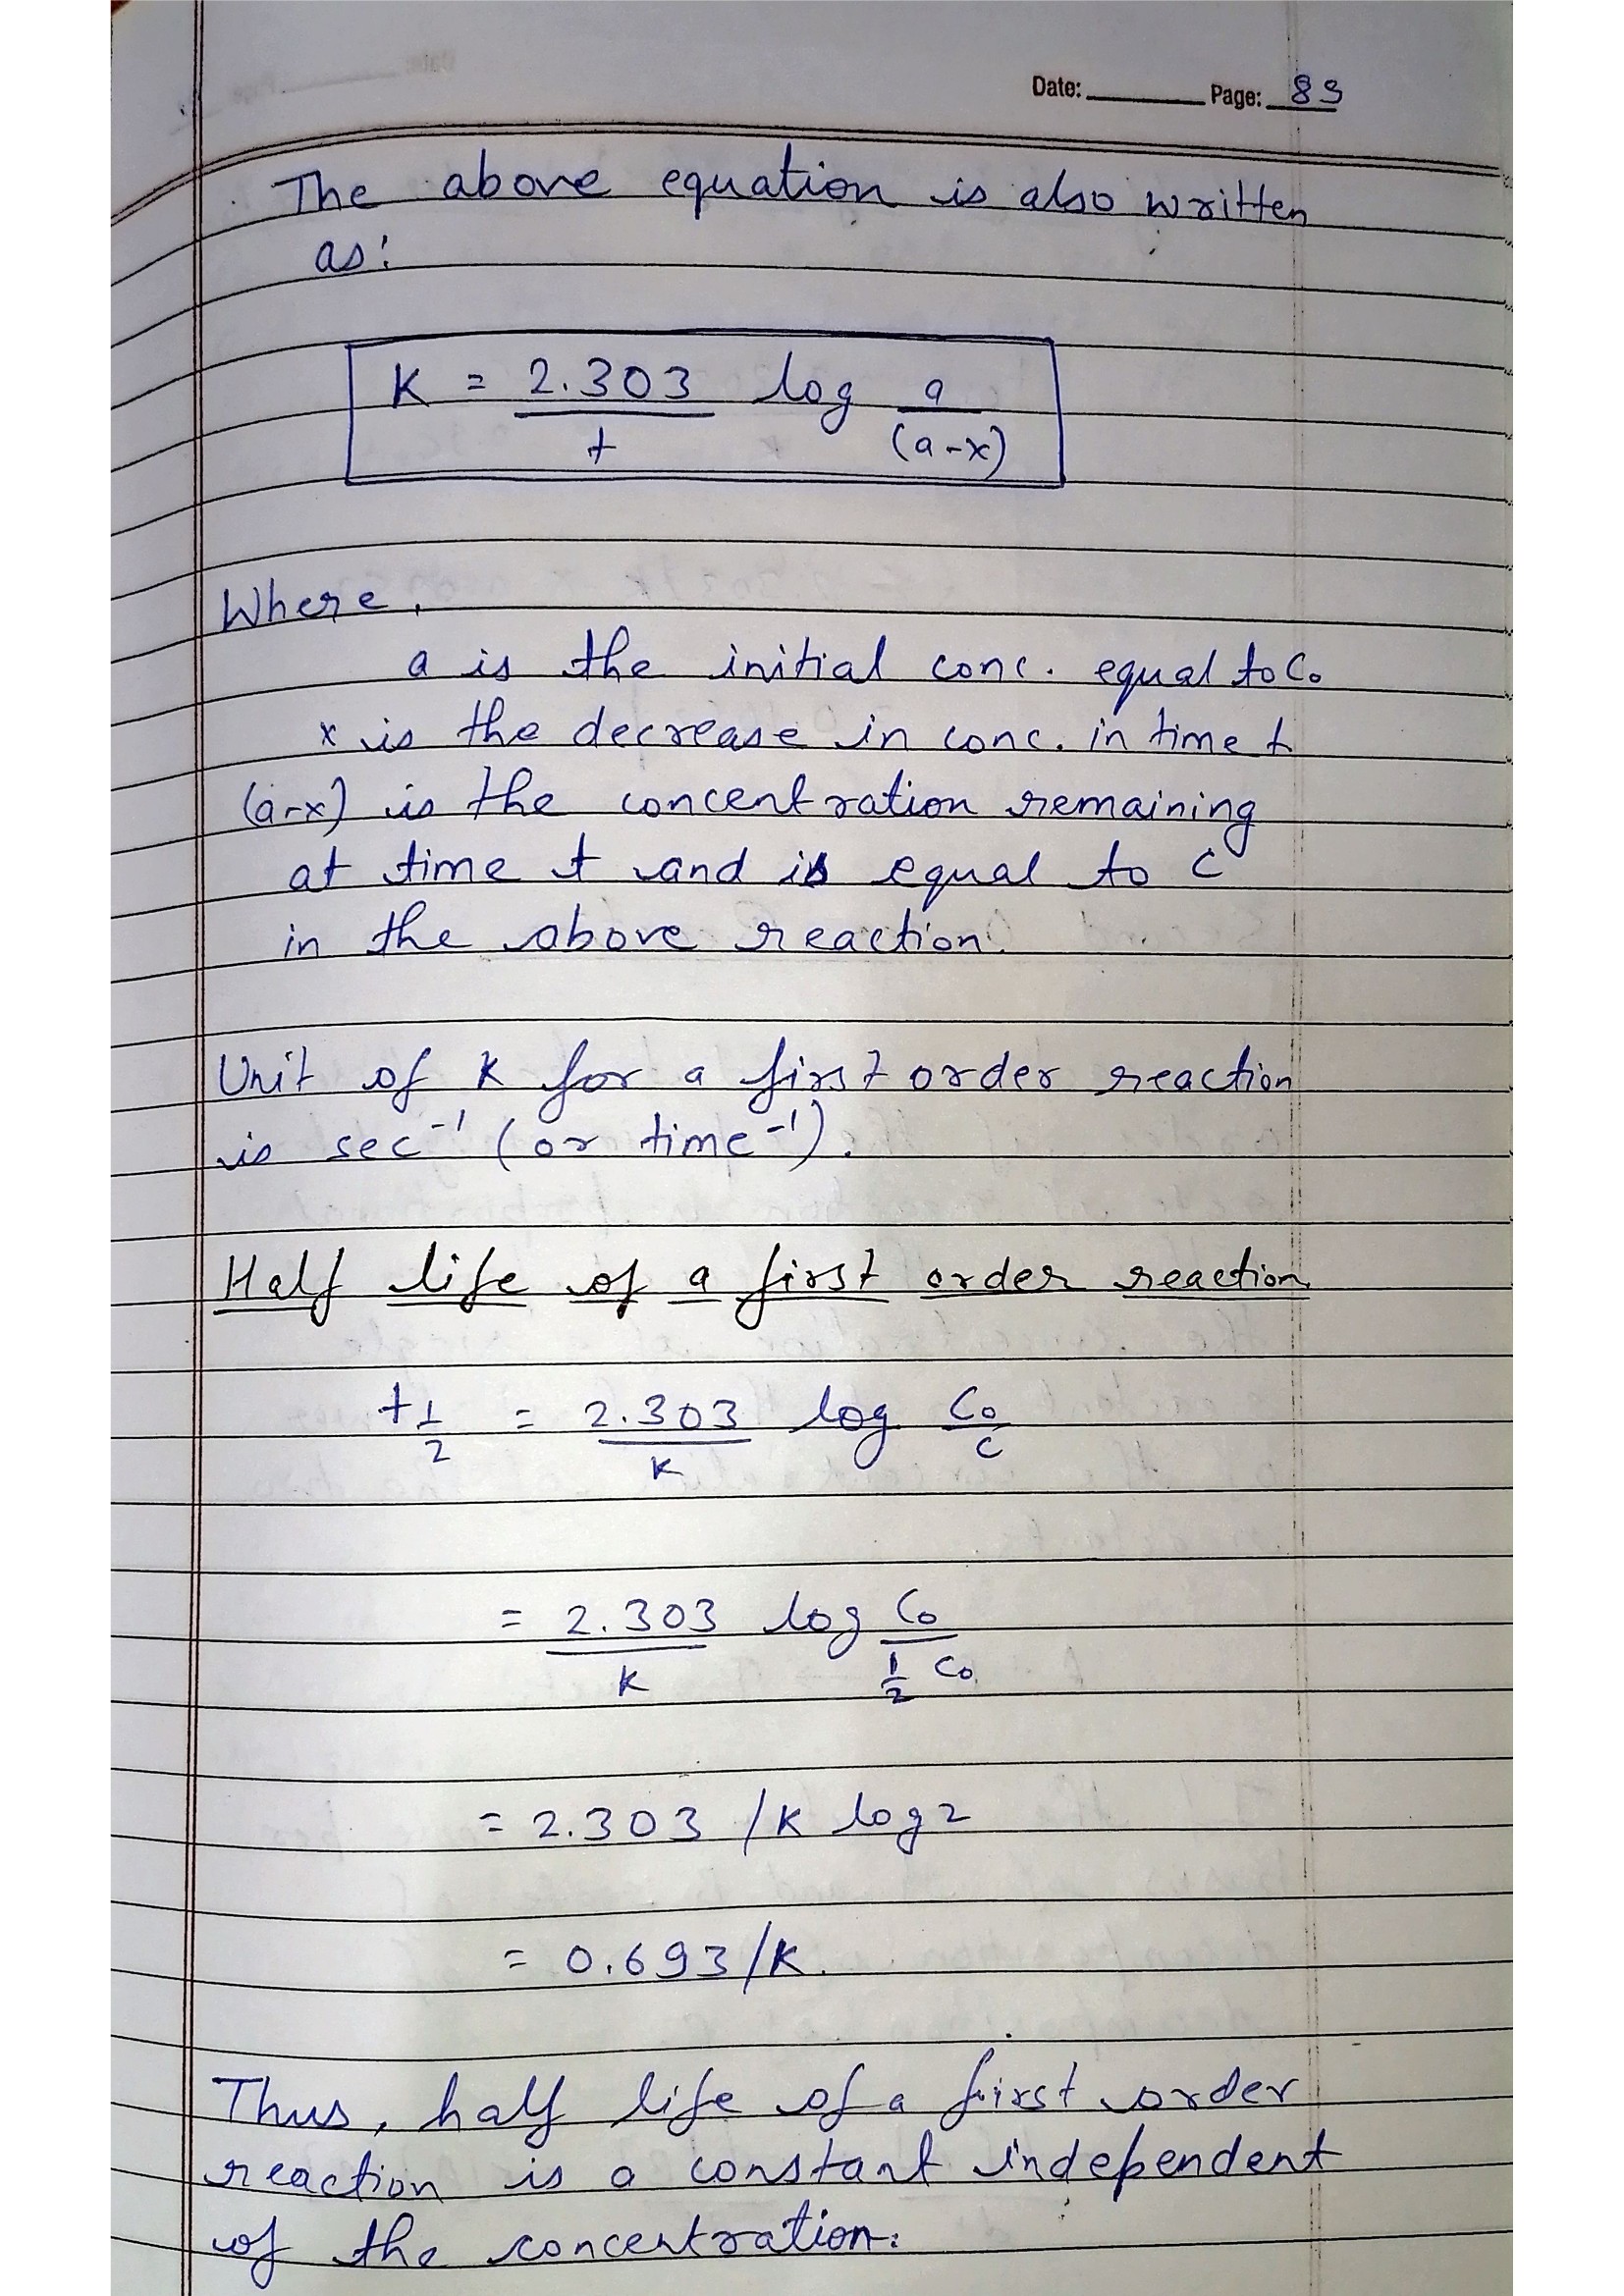 Date: Page: 89
The above equation is also written
as:
K = 2.303/t log a/(a-x)
Where,
a is the initial conc. equal to C₀
x is the decrease in conc. in time t
(a-x) is the concentration remaining
at time t and is equal to C
in the above reaction.
Unit of K for a first order reaction
is sec⁻¹ (or time⁻¹).
Half life of a first order reaction
t1/2 = 2.303/K log C₀/C
= 2.303/K log C₀/½ C₀
= 2.303 /K log 2
= 0.693/K.
Thus, half life of a first order
reaction is a constant independent
of the concentration.